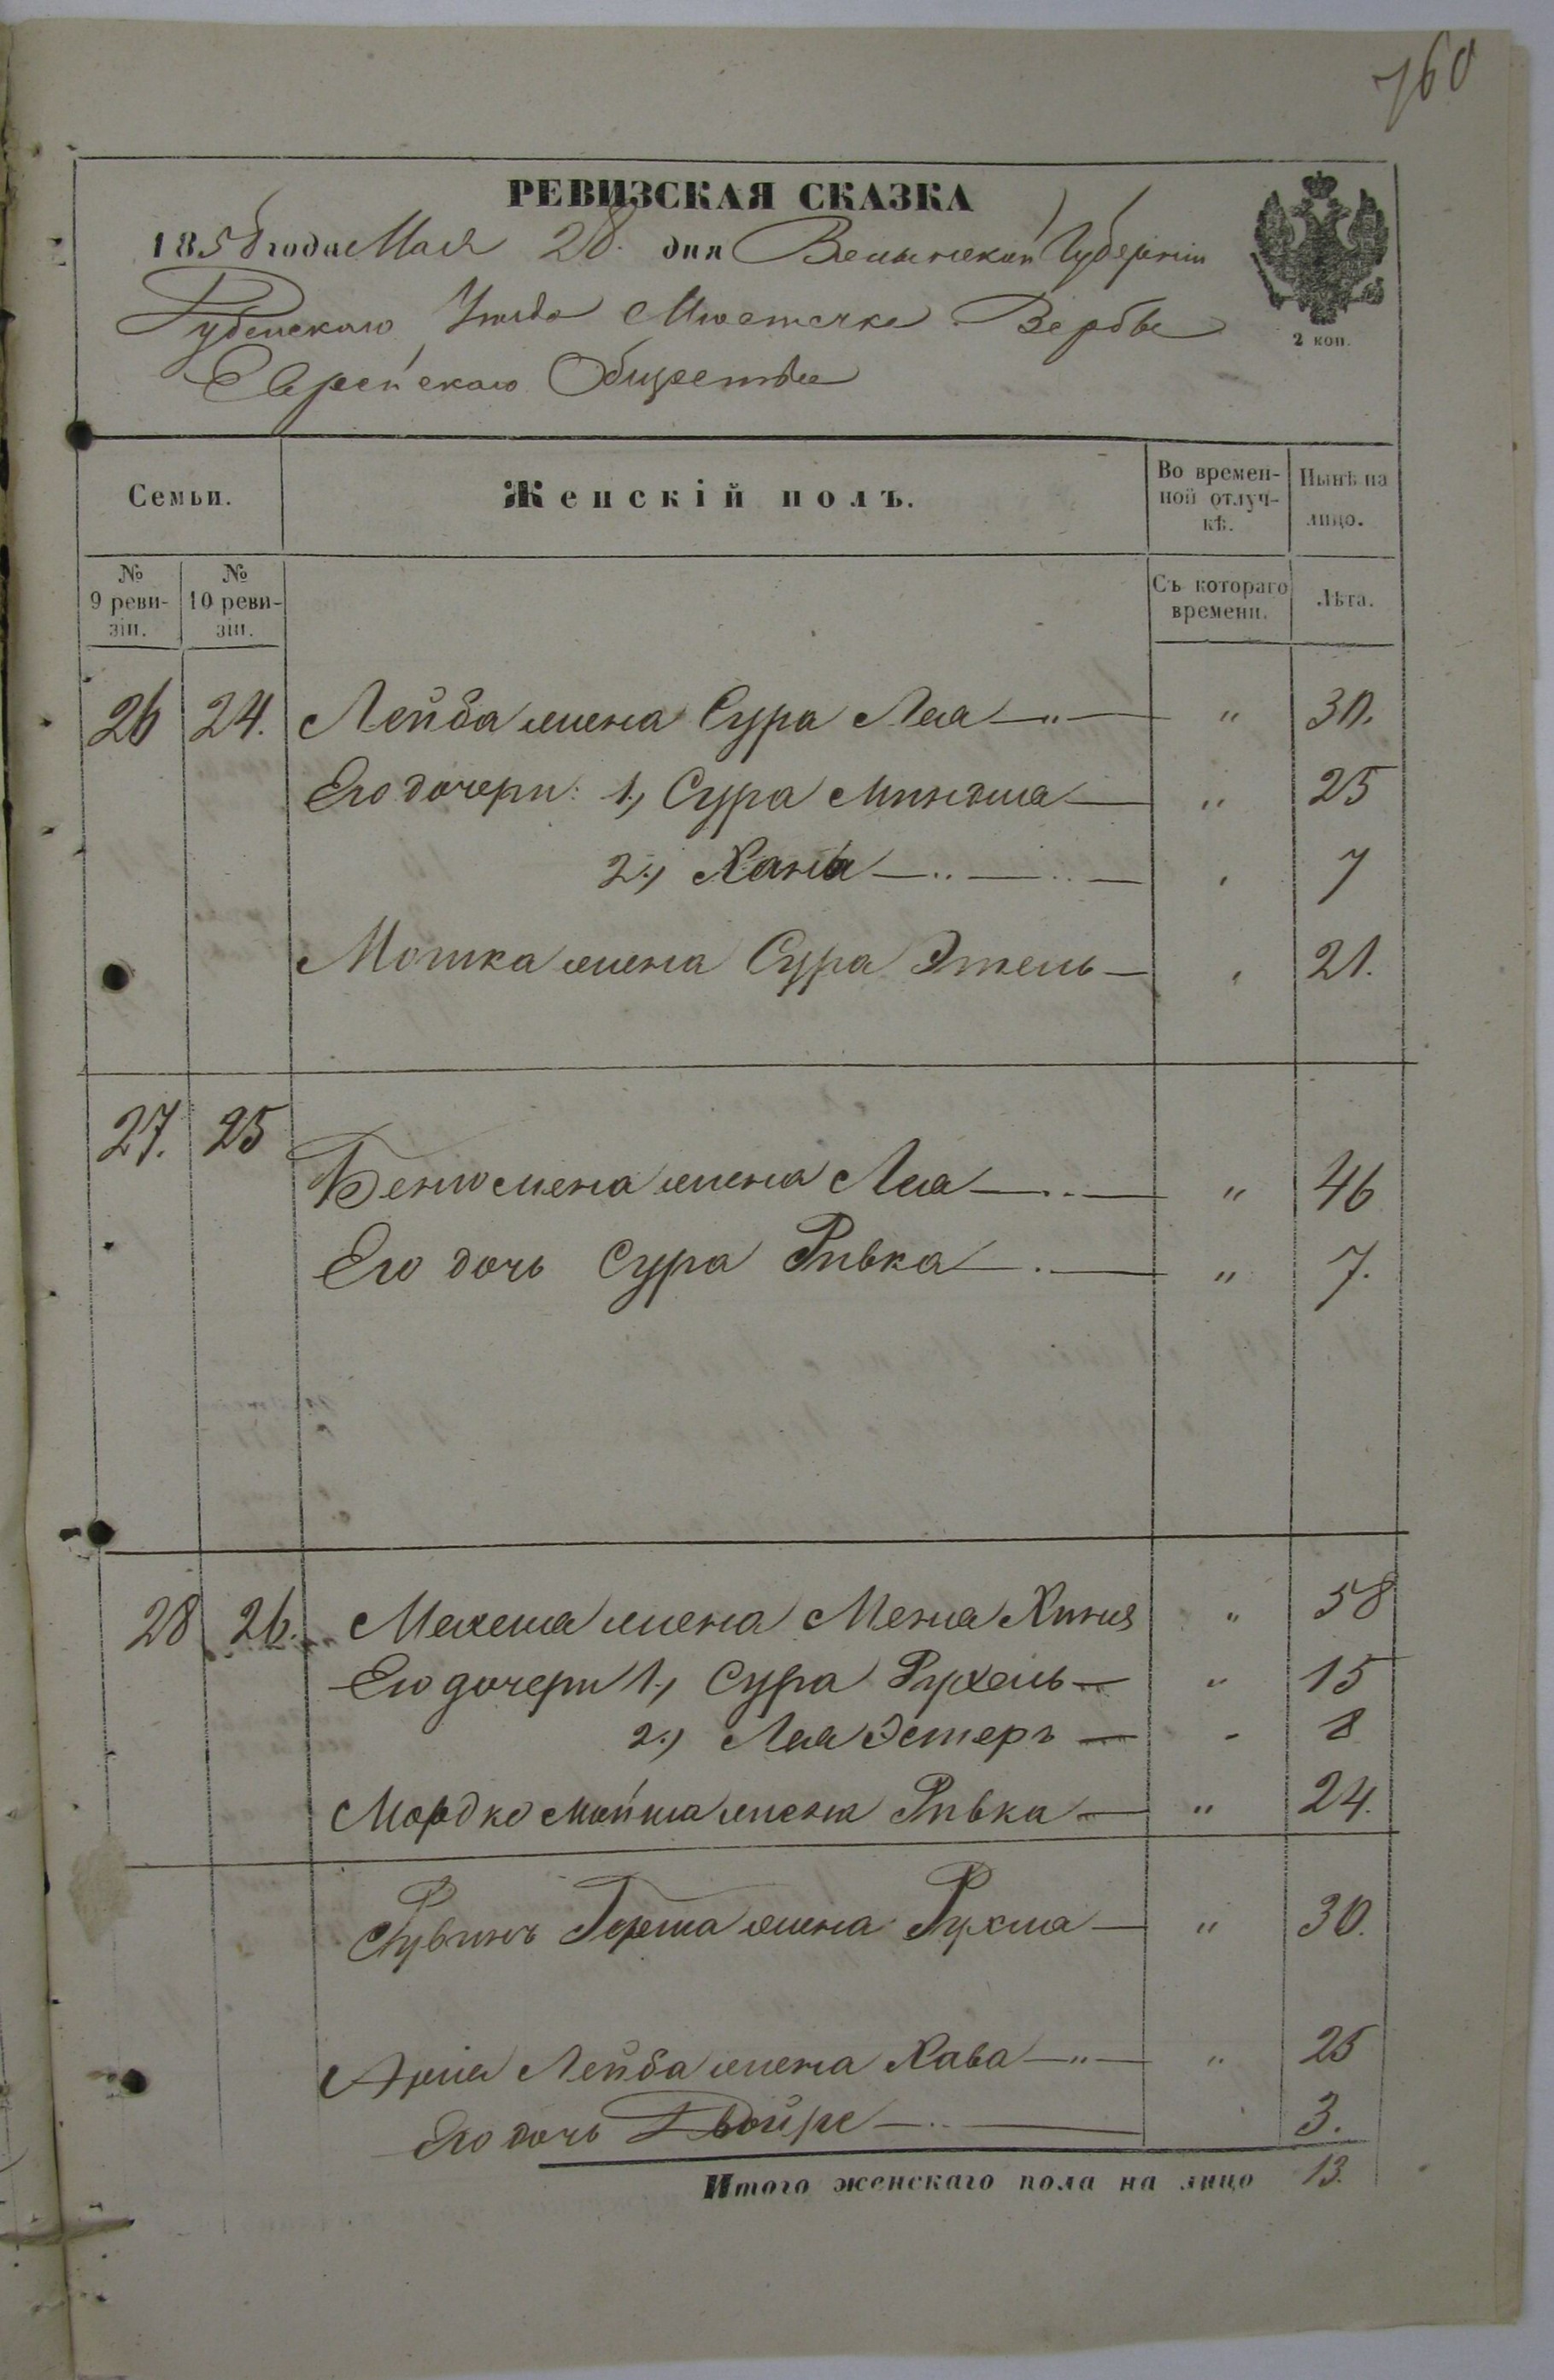 760
РЕВИЗСКАЯ СКАЗКА
1858 года Мая 28. дня Волынской Губерніи
Дубенскаго Уѣзда Мѣстечка Вербы
Еврейскаго Общества
2 коп.
Семьи. Женскій полъ. Во временной отлучкѣ. Нынѣ на лицо.
№ 9 ревизіи. № 10 ревизіи. Съ котораго времени. Лѣта.
26 24. Лейба жена Сура Лея —"— " 30.
Его дочери: 1., Сура Миндля — " 25
2., Хана — .. — .. — 7
Мошка жена Сура Этель — 21.
27. 25 Бенюмена жена Лея — .. — " 46
Его дочь Сура Ривка — . — " 7.
28 26. жена Меня Хиня " 58
Его дочери 1., Сура Рухель — " 15
2., Лея Эстеръ — 8
Мордко Мойша жена Ривка — " 24.
Рувинъ Герша жена Рухля — " 30.
Арія Лейба жена Хава —"— " 25
Его дочь Двойре — . — 3.
Итого женскаго пола на лицо 13.